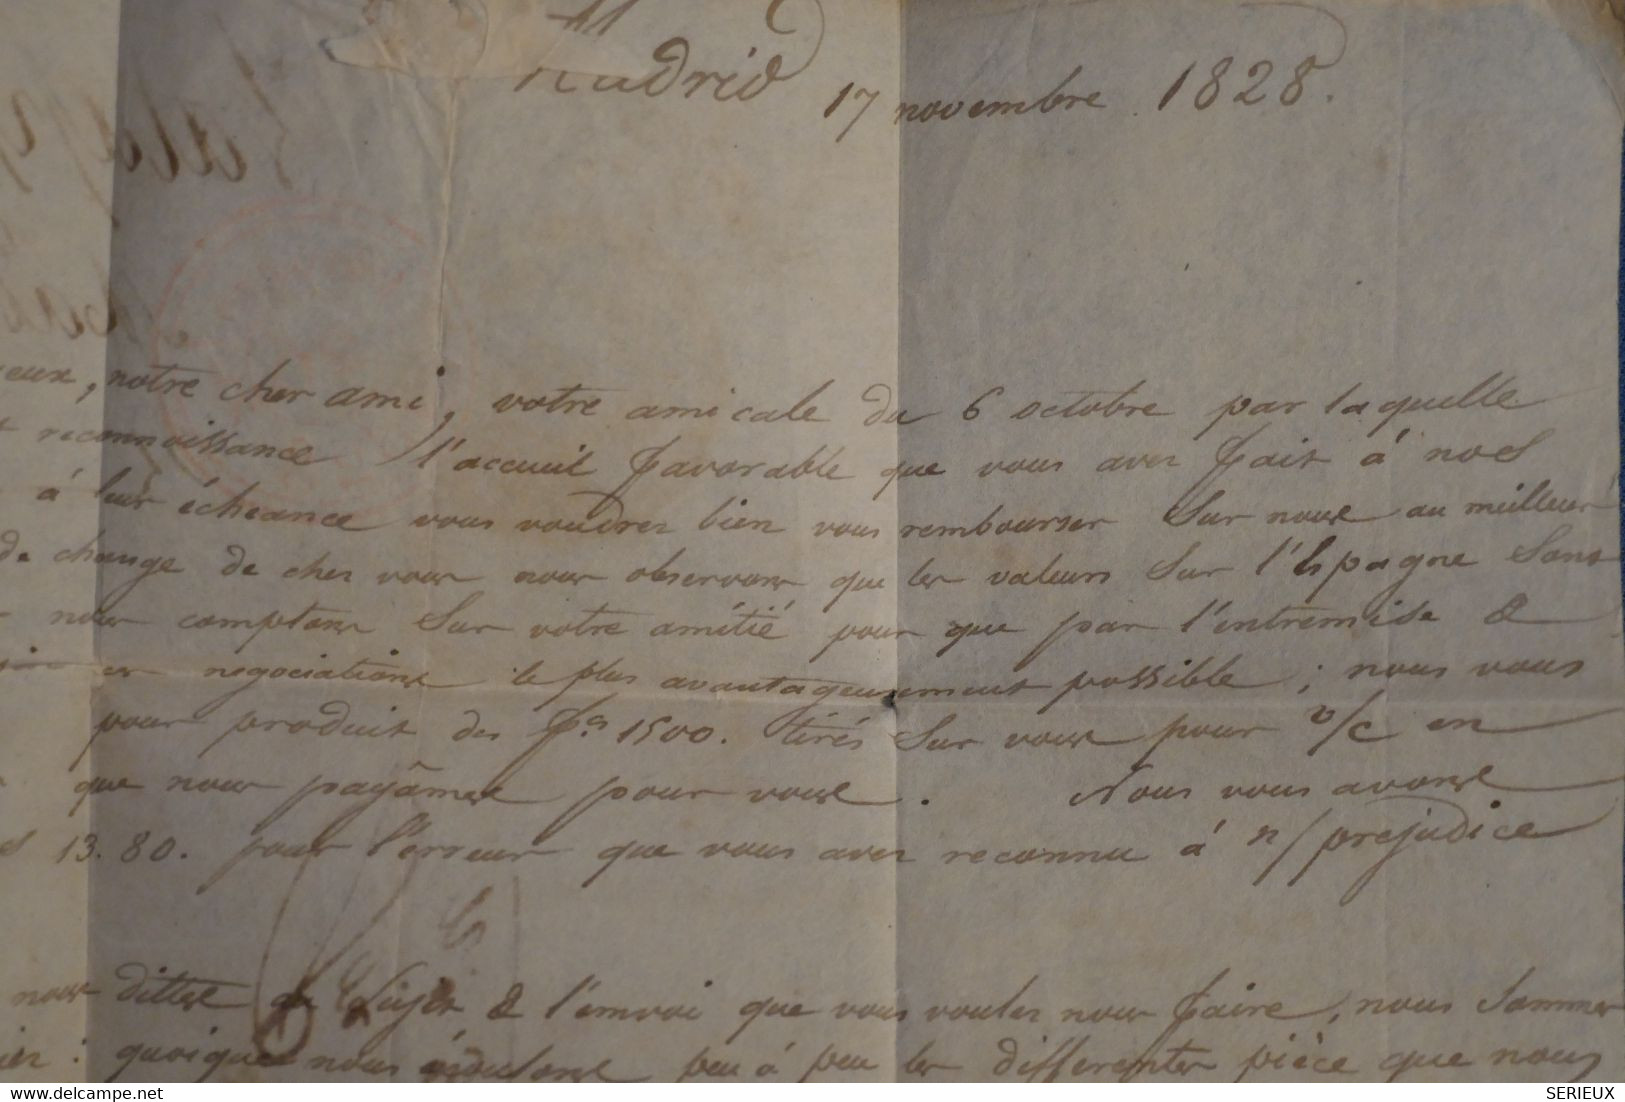 Madrid 17 novembre 1828.
notre cher ami, votre amicale du 6 octobre par laquelle
reconnoissance l'accueil favorable que vous avez fait à nos
à leur échéance vous voudrez bien vous rembourser sur nous au meilleur
de change de chez vous nous observons que les valeurs sur l'Espagne sont
nous comptons sur votre amitié pour que par l'entremise &
negociations le plus avantageusement possible ; nous vous
pour produit des fs 1500. tirés sur vous pour v/c en
que nous payâmes pour vous. Nous vous avons
13.80. pour l'erreur que vous avez reconnu à n/ préjudice
nous dittes au sujet & l'envoi que vous voulez nous faire, nous sommes
quoique nous écoulons peu à peu les differentes pièce que nous
delcampe.net
SERIEUX